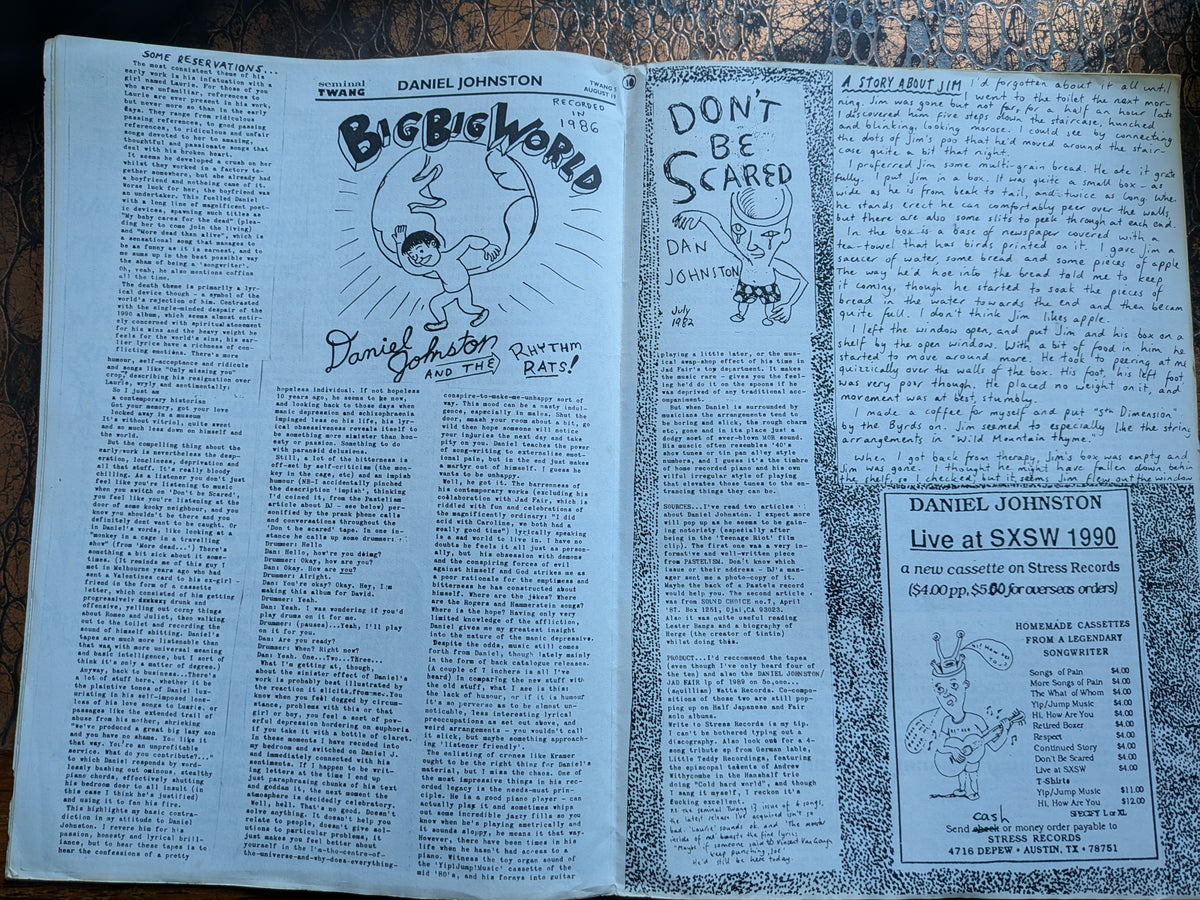 SOME RESERVATIONS...
The most consistent theme of his
early work is his infatuation with a
girl named Laurie. For those of you
who are unfamiliar, references to
Laurie are ever present in his work,
but never more so than in the early
days. They range from ridiculous
passing references, to good passing
references, to ridiculous and unfair
songs devoted to her to amazing,
thoughtful and passionate songs that
deal with his broken heart.
It seems he developed a crush on her
whilst they worked in a factory to-
gether somewhere, but she already had
a boyfriend and notheing came of it.
Worse luck for her, the boyfriend was
an undertaker. This fuelled Daniel
with a long line of magnificent poet-
ic devices, spawning such titles as
"My baby cares for the dead" (plea-
ding her to come join the living)
and "More dead than alive", which is
a sensational song that manages to
be as funny as it is earnest, and to
me sums up in the best possible way
the sham of being a 'songwriter'.
Oh, yeah, he also mentions coffins
all the time.
The death theme is primarily a lyr-
ical device though - a symbol of the
world's rejection of him. Contrasted
with the single-minded despair of the
1990 album, which seems almost entir-
ely concerned with spiritual atonement
for his sins and the heavy weight he
feels for the world's sins, his ear-
lier lyrics have a richness of con-
flicting emotions. There's more
humour, self-acceptance and ridicule
and songs like "Only missing you"
crop, describing his resignation over
Laurie, wryly and sentimentally:
So I just am
a contemporary historian
Got your memory, got your love
locked away in a museum
It's without vitriol, quite sweet
and so much less down on himself and
the world.
But the compelling thing about the
early work is nevertheless the desp-
eration, loneliness, deprivation and
all that stuff. It's really bloody
chilling. As a listener you don't just
feel like you're listening to music
when you switch on 'Don't be Scared',
you feel like you're listening at the
door of some kooky neighbour, and you
know you shouldn't be there and you
definitely dont want to be caught. Or
in Daniel's words, like looking at a
"monkey in a cage in a travelling
show" (from "More dead...") There's
something a bit sick about it some-
times. (It reminds me of this guy I
met in Melbourne years ago who had
sent a Valentines card to his ex-girl-
friend in the form of a cassette
letter, which consisted of him getting
progressively drunker, drunk and
offensive, yelling out corny things
about Romeo and Juliet, then walking
out to the toilet and recording the
sound of himself shitting. Daniel's
tapes are much more listenable than
that was, with more universal meaning
and basic intelligence, but I sort of
think it's only a matter of degree.)
Anyway, back to business...There's
a lot of stuff here, whether it be
the plaintive tones of Daniel lux-
uriating in his self-imposed lone-
ness of his love songs to Laurie, or
passages like the extended trail of
abuse from his mother, shrieking
"we've produced a great big lazy son
and you have no shame. You like it
that way. You're an unprofitable
service. What do you contribute?..."
to which Daniel responds by word-
lessly banging out ominous, stealthy
piano chords, effectively shutting
his bedroom door to all insult (in
his case I think he's justified)
and using it to fan his fire.
This highlights my basic contra-
diction in my attitude to Daniel
Johnston. I revere him for his
passion, honesty and lyrical brill-
iance, but to hear these tapes is to
hear the confessions of a pretty
seminal
TWANG
DANIEL JOHNSTON
TWANG
AUGUST
RECORDED
IN
1986
BIG BIG WORLD
Daniel
Johnston
AND THE
RHYTHM
RATS!
hopeless individual. If not hopeless
10 years ago, he seems to be now,
and looking back to those days when
manic depression and schizophrenia
impinged less on his life, his lyr-
ical obsessiveness reveals itself to
be something more sinister than hon-
esty or passion. Something to do
with paranoid delusions.
Still, a lot of the bitterness is
off-set by self-criticism (the mon-
key in the cage, etc) and an impish
humour (NB-I accidentally pinched
the description 'impish', thinking
I'd coined it, from the Pastelism
article about DJ - see below) per-
sonified by the prank phone calls
and conversations throughout the
'Don't be Scared' tape. In one in-
stance he calls up some drummer:
Drummer: Hello
Dan: Hello, how're you doing?
Drummer: Okay, how are you?
Dan: Okay. How are you?
Drummer: Alright.
Dan: You're okay? Okay. Hey, I'm
making this album for David.
Drummer: Yeah.
Dan: Yeah. I was wondering if you'd
play drums on it for me.
Drummer: (pauses)...Yeah, I'll play
on it for you.
Dan: Are you ready?
Drummer: When? Right now?
Dan: Yeah. One...Two...Three...
What I'm getting at, though,
about the sinister effect of Daniel's
work is probably best illustrated by
the reaction it elicits from me. You
know when you feel bogged by circum-
stance, problems with cars or that
girl or boy, you feel a sort of pow-
erful depression bordering on euphoria
if you take it with a bottle of claret.
In these moments I have receded into
my bedroom and switched on Daniel J.
and immediately connected with his
sentiments. If I happen to be writ-
ing letters at the time I end up
just paraphrasing chunks of his text
and goddam it, the next moment the
atmosphere is decidedly celebratory.
Well, hell. That's no good. Doesn't
solve anything. It doesn't help you
relate to people, doesn't give sol-
utions to particular problems, it
just makes you feel better about
yourself in the I'm-the-centre-of-
the-universe-and-why-does-everything-
conspire-to-make-me-unhappy sort of
way. This mood can be a nasty indul-
gence, especially in males. Shut the
door, smash your room about a bit, go
wild then hope someone will notice
your injuries the next day and take
pity on you. Daniel teaches the power
of song-writing to externalise emot-
ional pain, but in the end just makes
a martyr out of himself. I guess he
wants to be unhappy.
Well, he got it. The barreness of
his contemporary works (excluding his
collaboration with Jad Fair, which is
riddled with fun and celebrations of
the magnificently ordinary: "I did
acid with Caroline, we both had a
really good time") lyrically speaking
is a sad world to live in. I have no
doubts he feels it all just as person-
ally, but his obsession with demons
and the conspiring forces of evil
against himself and God strikes me as
a poor rationale for the emptiness and
bitterness he has constructed about
himself. Where are the jokes? Where
are the Rogers and Hammerstein songs?
Where is the hope? Having only very
limited knowledge of the affliction,
Daniel gives me my greatest insight
into the nature of the manic depressive.
Despite the odds, music still comes
forth from Daniel, though lately mainly
in the form of back catalogue releases.
(A couple of 7 inchers is all I've
heard) In comparing the new stuff with
the old stuff, what I see is this:
the lack of humour, or if it is humour
it's so perverse as to be almost un-
noticable, less interesting lyrical
preoccupations as set out above, and
weird arrangements - you wouldn't call
it slick, but maybe something approach-
ing 'listener friendly'.
The enlisting of someone like Kramer
ought to be the right thing for Daniel's
material, but I miss the chaos. One of
the most impressive things in his rec-
orded legacy is the needs-must prin-
ciple. He is a good piano player - can
actually play it and sometimes whips
out some incredible jazzy fills so you
know when he's playing ametrically and
it sounds sloppy, he means it that way.
However, there have been times in his
life when he hasn't had access to a
piano. Witness the toy organ sound of
the 'Yip/Jump Music' cassette of the
mid '80's, and his forays into guitar
10
DON'T
BE
SCARED
DAN
JOHNSTON
July
1982
playing a little later, or the mus-
ical swap-shop effect of his time in
Jad Fair's toy department. It makes
the music rare - gives you the feel-
ing he'd do it on the spoons if he
was deprived of any traditional acc-
ompaniment.
But when Daniel is surrounded by
musicians the arrangements tend to
be boring and slick, the rough charm
etc, gone and in its place just a
dodgy sort of over-blown MOR sound.
His music often resembles '40's
show tunes or tin pan alley style
numbers, and I guess it's the timbre
of home recorded piano and his own
wilful irregular style of playing
that elevates those tunes to the en-
trancing things they can be.
SOURCES...I've read two articles
about Daniel Johnston. I expect more
will pop up as he seems to be gai-
ning notoriety (especially after
being in the 'Teenage Riot' film
clip). The first one was a very in-
formative and well-written piece
from PASTELISM. Don't know which
issue or their address - DJ's man-
ager sent me a photo-copy of it.
Maybe the back of a Pastels record
would help you. The second article
was from SOUND CHOICE no.7, April
'87. Box 1251, Ojai, CA 93023.
Also it was quite useful reading
Lester Bangs and a biography of
Herge (the creator of tintin)
whilst doing this.
PRODUCT...I'd reccommend the tapes
(even though I've only heard four of
the ten) and also the DANIEL JOHNSTON/
JAD FAIR lp of 1989 on 50,000...
(squillian) Watts Records. Co-compo-
sitions of those two are still pop-
ping up on Half Japanese and Fair
solo albums.
Write to Stress Records is my tip.
I can't be bothered typing out a
discography. Also look out for a 4-
song tribute ep from German lable,
Little Teddy Recordings, featuring
the episcopal talents of Andrew
Withycombe in the Hanshalf trio
doing "Cold hard world", and though
I sang it myself, I reckon it's
fucking excellent.
"Maybe if someone said to Vincent Van Gough,
'keep punching Joe'
He'd still be here today.
A STORY ABOUT JIM I'd forgotten about it all until
I went to the toilet the next mor-
ning. Jim was gone but not far, for a half an hour late
I discovered him five steps down the staircase, hunched
and blinking, looking morose. I could see by connecting
the dots of Jim's poo that he'd moved around the stair-
case quite a bit that night.
I proferred Jim some multi-grain bread. He ate it grate
fully. I put Jim in a box. It was quite a small box - as
wide as he is from beak to tail, and twice as long. Whe
he stands erect he can comfortably peer over the walls,
but there are also some slits to peek through at each end.
In the box is a base of newspaper covered with a
tea-towel that has birds printed on it. I gave Jim a
saucer of water, some bread and some pieces of apple
The way he'd hoe into the bread told me to keep
it coming, though he started to soak the pieces of
bread in the water towards the end and then becam
quite full. I don't think Jim likes apple.
I left the window open, and put Jim and his box on a
shelf by the open window. With a bit of food in him he
started to move around more. He took to peering at me
quizzically over the walls of the box. His foot, his left foot
was very poor though. He placed no weight on it, and
movement was at best, stumbly.
I made a coffee for myself and put "5th Dimension"
by the Byrds on. Jim seemed to especially like the string
arrangements in "Wild Mountain thyme".
When I got back from therapy, Jim's box was empty and
Jim was gone. I thought he might have fallen down behin
the shelf, so I checked, but it seems Jim flew out the window
DANIEL JOHNSTON
Live at SXSW 1990
a new cassette on Stress Records
($4.00 pp, $5.00 for overseas orders)
HOMEMADE CASSETTES
FROM A LEGENDARY
SONGWRITER
Songs of Pain $4.00
More Songs of Pain $4.00
The What of Whom $4.00
Yip/Jump Music $4.00
Hi, How Are You $4.00
Retired Boxer $4.00
Respect $4.00
Continued Story $4.00
Don't Be Scared $4.00
Live at SXSW $4.00
T-Shirts
Yip/Jump Music $11.00
Hi, How Are You $12.00
SPECIFY L or XL
cash
Send check or money order payable to
STRESS RECORDS
4716 DEPEW • AUSTIN, TX • 78751